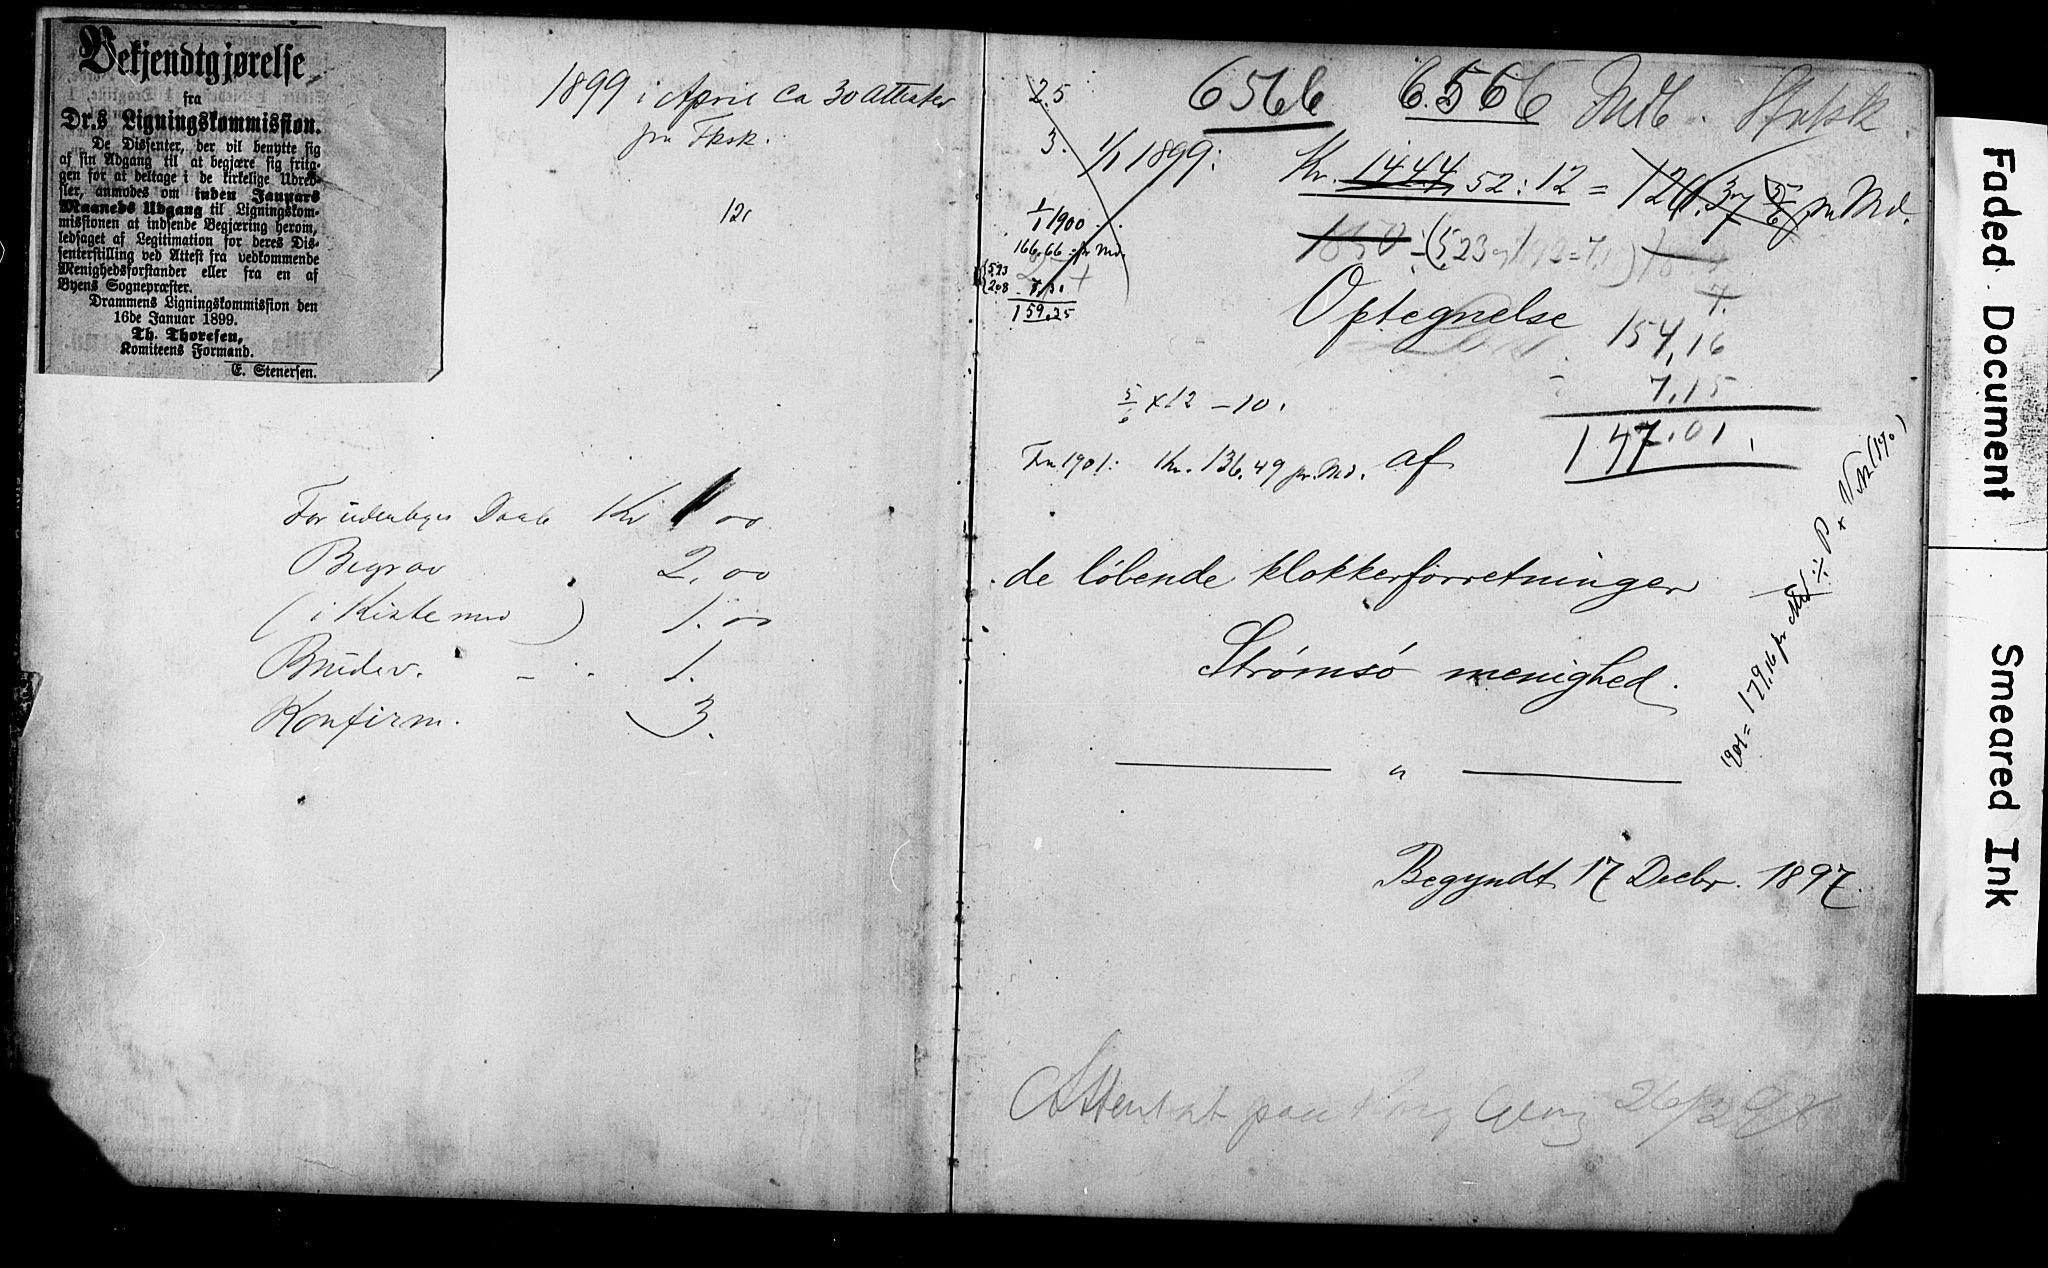 Bekjendtgjørelse
fra
Dr.s Ligningskommission.
De Dissenter, der vil benytte sig
af sin Adgang til at begjære sig frita-
gen for at deltage i de kirkelige Udred-
sler, anmodes om inden Januars
Maaneds Udgang til Ligningskom-
missionen at indsende Begjæring herom,
ledsaget af Legitimation for deres Dis-
senterstilling ved Attest fra vedkommende
Menighedsforstander eller fra en af
Byens Sognepræster.
Drammens Ligningskommission den
16de Januar 1899.
Th. Thoresen,
Komiteens Formand.
E. Stenersen.
1899 i April ca 30 attester
Kr 1 00
Begrav 2.00
(i Kiste med ) 1.00
Brudev. - . 1.
Konfirm. 3.
2.5
3.
6566 6.566
1/1 1899: Kr. 1444,52 : 12 = 120.37 5/6 pr Md.
1/1 1900
166,66 pr Md.
5,23
2,08
159.25
Optegnelse
154,16
7,15
147.01
5/6 x 12 - 10.
Fra 1901: Kr. 136,49 pr. Md. af
de løbende klokkerforretninger
Strømsø menighed.
"
1901 = 179,16 pr Md
Begyndt 17 Decbr. 1897.
Attentat paa Kong Georg 26/2 98
Faded Document
Smeared Ink